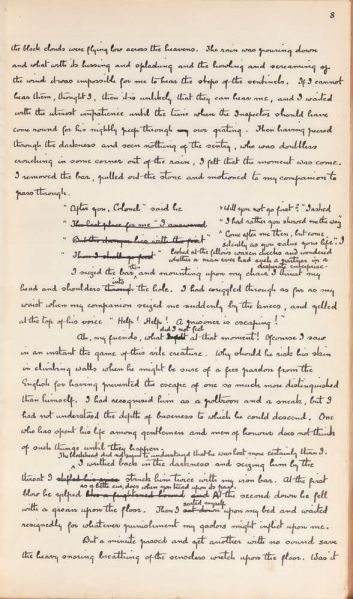 8
the black clouds were flying low across the heavens. The rain was pouring down
and what with its hissing and splashing and the howling and screaming of
the wind it was impossible for me to hear the steps of the sentinels. If I cannot
hear them, thought I, then it is unlikely that they can hear me, and I waited
with the utmost impatience until the time when the Inspector should have
come round for his nightly peep through our grating. Then having peered
through the darkness and seen nothing of the sentry, who was doubtless
crouching in some corner out of the rain, I felt that the moment was come.
I removed the bar, pulled out the stone and motioned to my companion to
pass through.
"After you, Colonel" said he
"Will you not go first?" I asked
"The best place for me" I answered
"I had rather you showed me the way"
"But the danger lies with the first"
"Come after me then, but come
silently as you value your life".
"Then I shall go first"
looked at the fellow's
and wondered
whether a man ever had such a partner in a
desperate enterprise.
I seized the bar, and mounting upon my chair I thrust my
then
into
head and shoulders through the hole. I had wriggled through as far as my
waist when my companion seized me suddenly by the knees, and yelled
at the top of his voice "Help! Help! A prisoner is escaping!"
did I not feel
Ah, my friends, what at that moment! Of course I saw
in an instant the game of this vile creature. Why should he risk his skin
in climbing walls when he might be sure of a free pardon from the
English for having prevented the escape of one so much more distinguished
than himself. I had recognised him as a poltroon and a sneak, but I
had not understood the depth of baseness to which he could descend. One
who has spent his life among gentlemen and men of honour does not think
of such things until they happen.
The blockhead did not seem to understand that he was lost more certainly than I.
I writhed back in the darkness and seizing him by the
throat I struck him twice with my iron bar. At the first
as a little cur does when you tread upon its paw.
blow he yelped like a frightened hound and At the second down he fell
seated myself
with a groan upon the floor. Then I sat down upon my bed and waited
resignedly for whatever punishment my gaolers might inflict upon me.
But a minute passed and yet another with no sound save
the heavy snoring breathing of the senseless wretch upon the floor. Was it